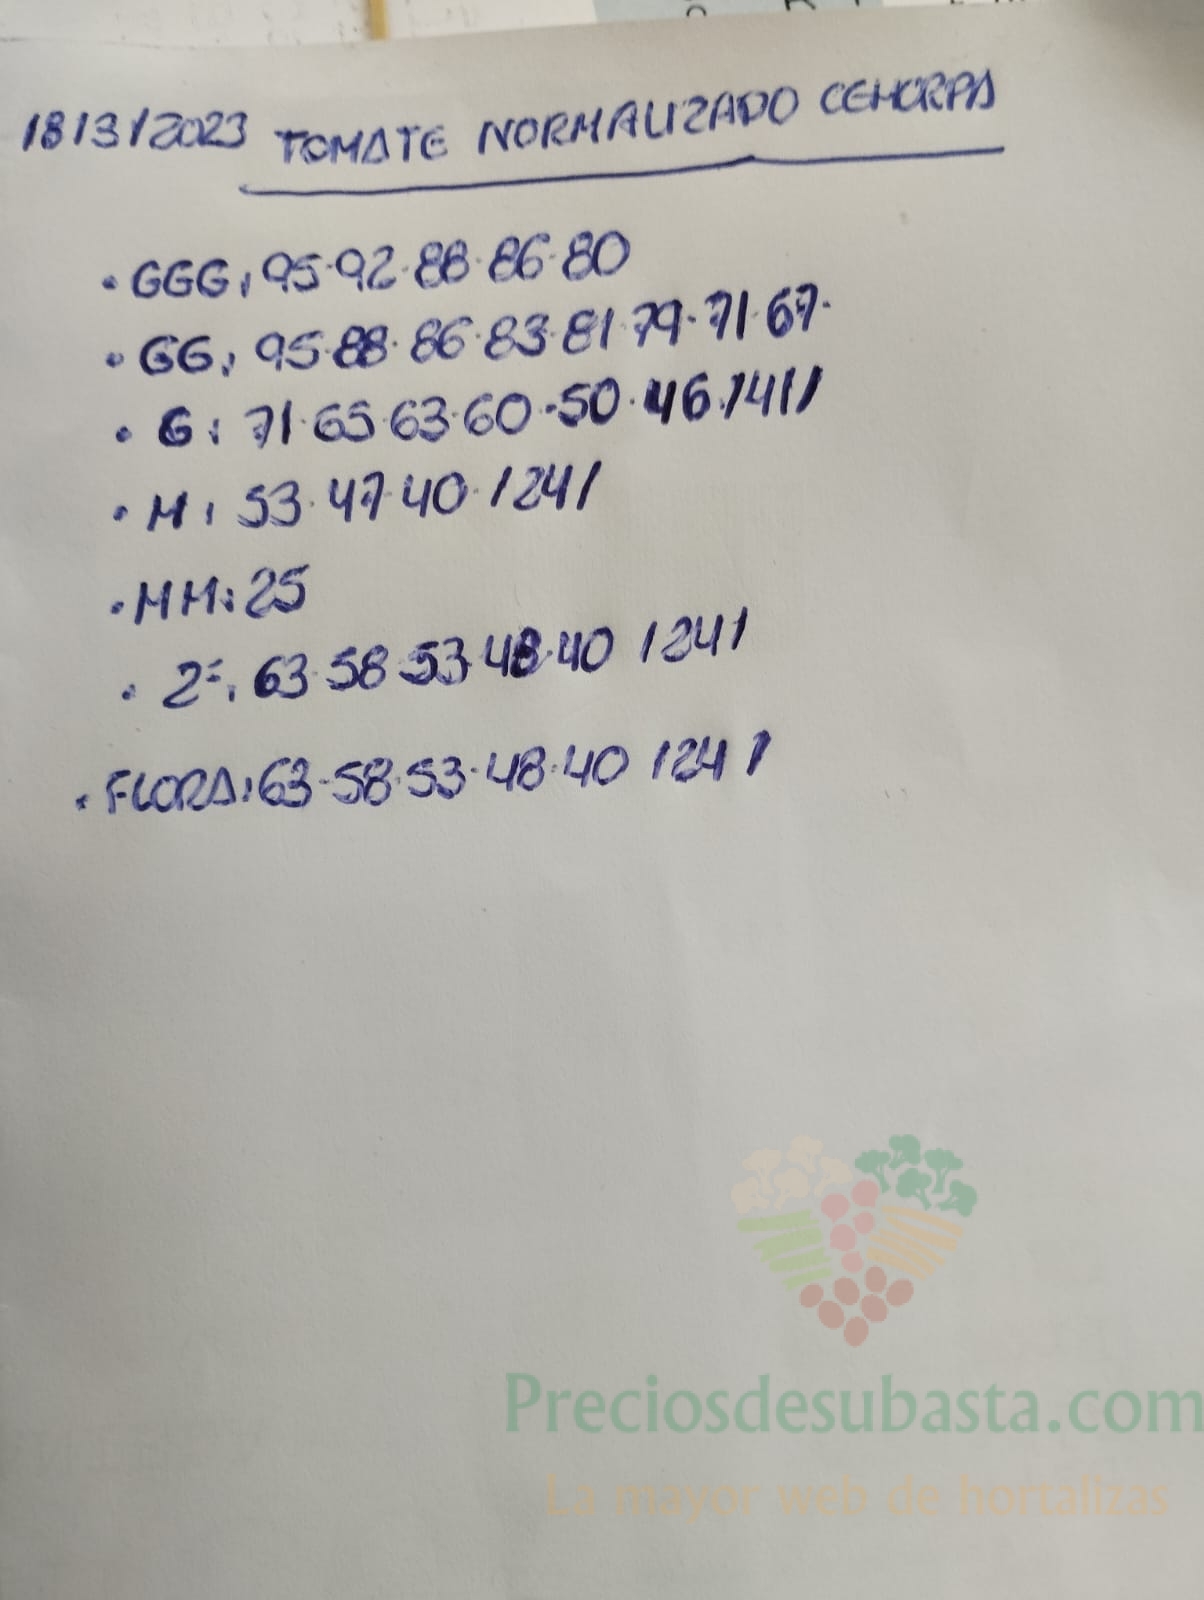 18/3/2023 TOMATE NORMALIZADO CEHORPA
• GGG: 95·92·88·86·80
• GG: 95·88·86·83·81·79·71·67·
• G: 71·65·63·60·50·46·/41/
• M: 53·47·40·/24/
• MM: 25
• 2ª: 63·58·53·48·40 /24/
• FLORA: 63·58·53·48·40 /24/
Preciosdesubasta.com
La mayor web de hortalizas